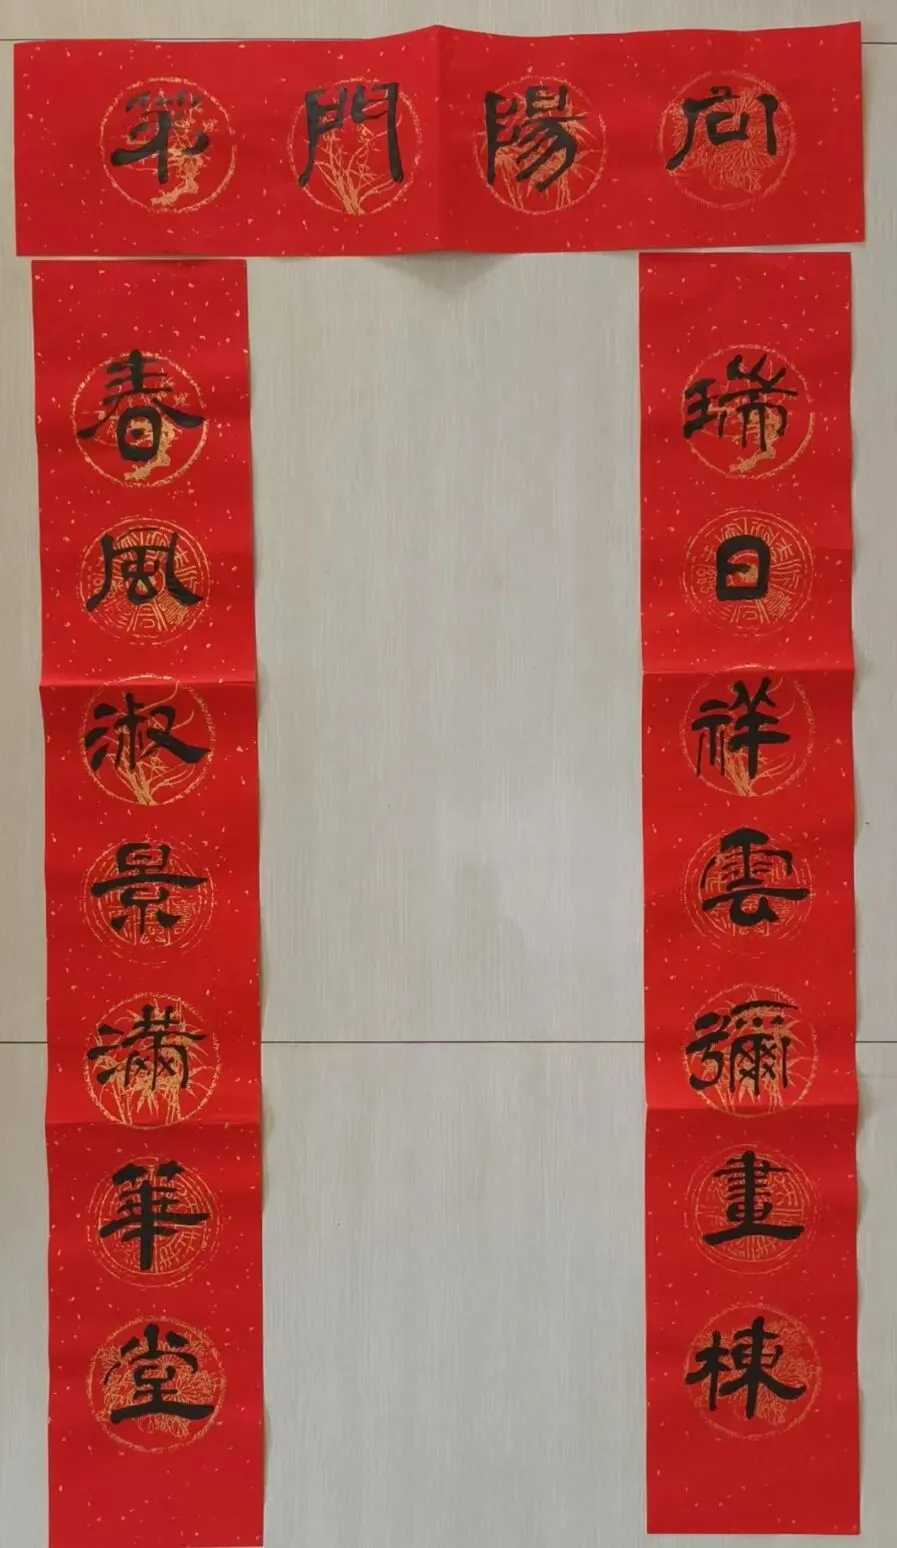 向陽門第
瑞日祥雲彌畫棟
春風淑景滿華堂